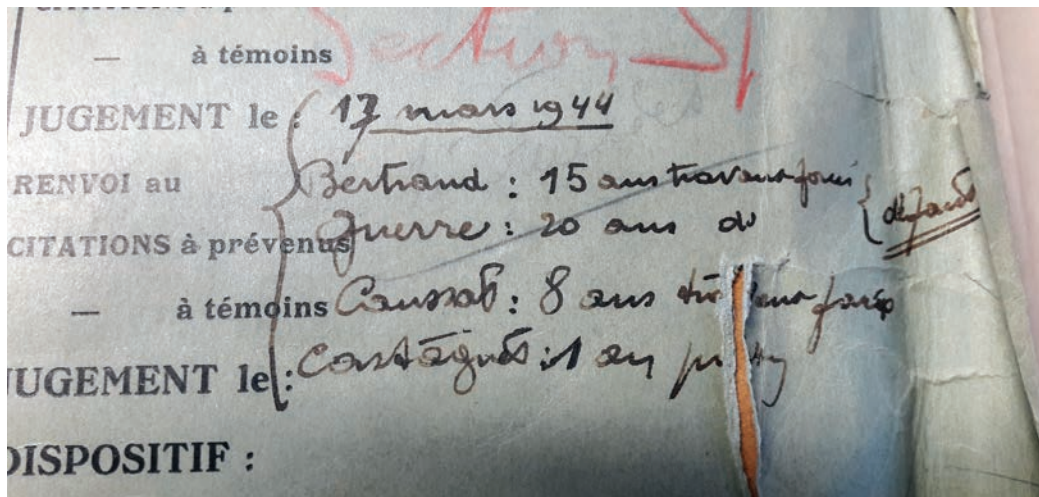 — à témoins
Section S
JUGEMENT le : 17 mars 1944
RENVOI au Bertrand : 15 ans travaux forcés
défaut
CITATIONS à prévenus Guerre : 20 ans do
— à témoins Caussat : 8 ans travaux forcés
JUGEMENT le : Castagnés : 1 an
DISPOSITIF :